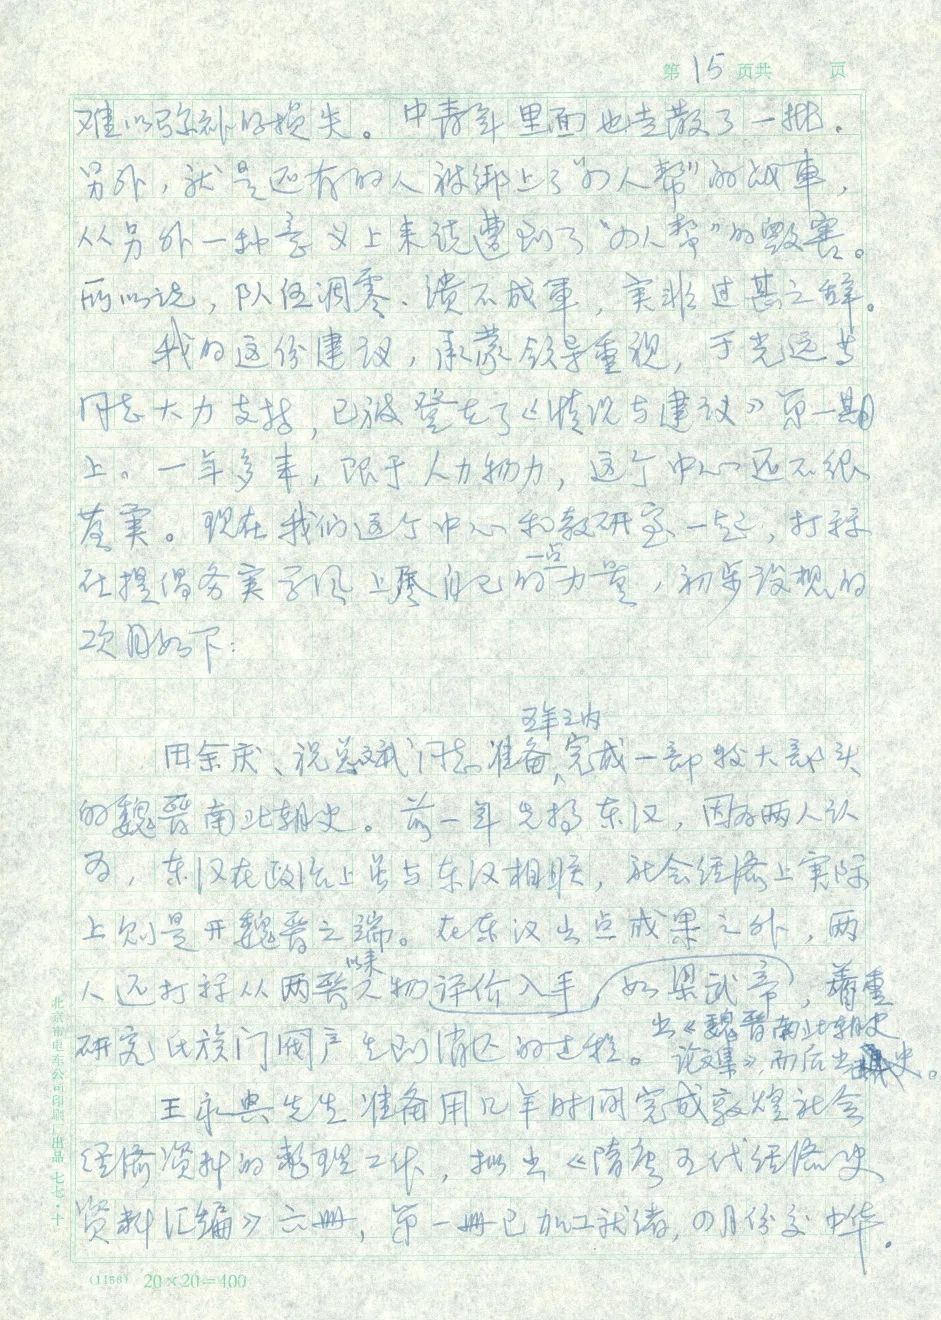 第 15 页共 页
难以弥补的损失。中青年里面也走散了一批。
另外，就是还有的人被绑上了"四人帮"的战車，
从另外一种意义上来说遭到了"四人帮"的毁害。
所以说，队伍凋零、溃不成軍，实非过甚之辞。
我的这份建议，承蒙领导重视，于光远等
同志大力支持，已被登在了《情况与建议》第一期
上。一年多来，限于人力物力，这个中心还不很
落实。现在我们这个中心和教研室一起，打算
在提倡务实学风上尽自己的一点力量，初步设想的
项目如下：
田余庆、祝总斌同志准备五年之内完成一部较大部头
的魏晋南北朝史。前一年先搞东汉，因为两人认
为，东汉在政治上虽与东汉相联，社会经济上实际
上则是开魏晋之端。在东汉出点成果之外，两
人还打算从两晋以来人物评价入手（如梁武帝），着重
研究氏族门阀产生到消亡的过程。出《魏晋南北朝史
论文集》，而后出史。
王永兴先生准备用几年时间完成敦煌社会
经济资料的整理工作，拟出《隋唐五代经济史
资料汇编》六册，第一册已加工就绪，四月份交中华。
北京市电车公司印刷厂出品 七七·十
(1156) 20×20=400